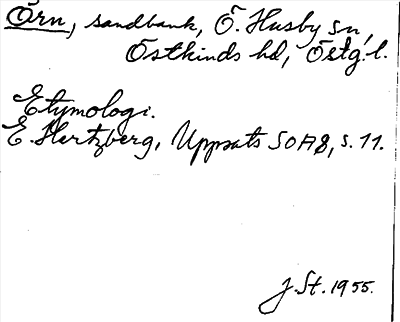 Örn, sandbank, Ö. Husby sn,
Östkinds hd, Östg. l.
Etymologi.
E. Hertzberg, Uppsats SOA8, s. 11.
J. St. 1955.